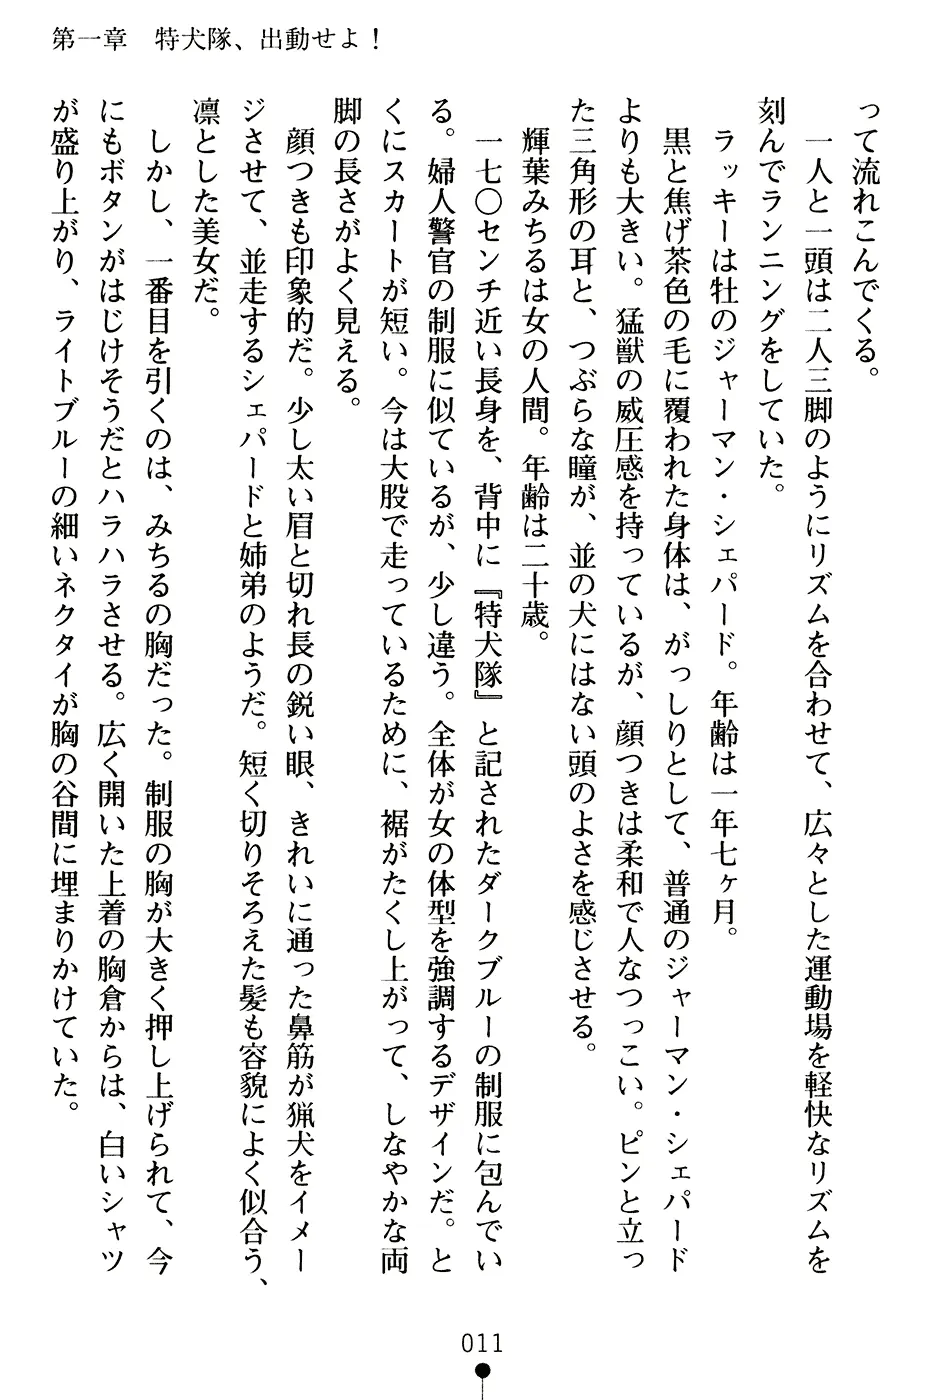 第一章　特犬隊、出動せよ！
って流れこんでくる。
　一人と一頭は二人三脚のようにリズムを合わせて、広々とした運動場を軽快なリズムを
刻んでランニングをしていた。
　ラッキーは牡のジャーマン・シェパード。年齢は一年七ヶ月。
　黒と焦げ茶色の毛に覆われた身体は、がっしりとして、普通のジャーマン・シェパード
よりも大きい。猛獣の威圧感を持っているが、顔つきは柔和で人なつっこい。ピンと立っ
た三角形の耳と、つぶらな瞳が、並の犬にはない頭のよさを感じさせる。
　輝葉みちるは女の人間。年齢は二十歳。
　一七〇センチ近い長身を、背中に『特犬隊』と記されたダークブルーの制服に包んでい
る。婦人警官の制服に似ているが、少し違う。全体が女の体型を強調するデザインだ。と
くにスカートが短い。今は大股で走っているために、裾がたくし上がって、しなやかな両
脚の長さがよく見える。
　顔つきも印象的だ。少し太い眉と切れ長の鋭い眼、きれいに通った鼻筋が猟犬をイメー
ジさせて、並走するシェパードと姉弟のようだ。短く切りそろえた髪も容貌によく似合う、
凛とした美女だ。
　しかし、一番目を引くのは、みちるの胸だった。制服の胸が大きく押し上げられて、今
にもボタンがはじけそうだとハラハラさせる。広く開いた上着の胸倉からは、白いシャツ
が盛り上がり、ライトブルーの細いネクタイが胸の谷間に埋まりかけていた。
011